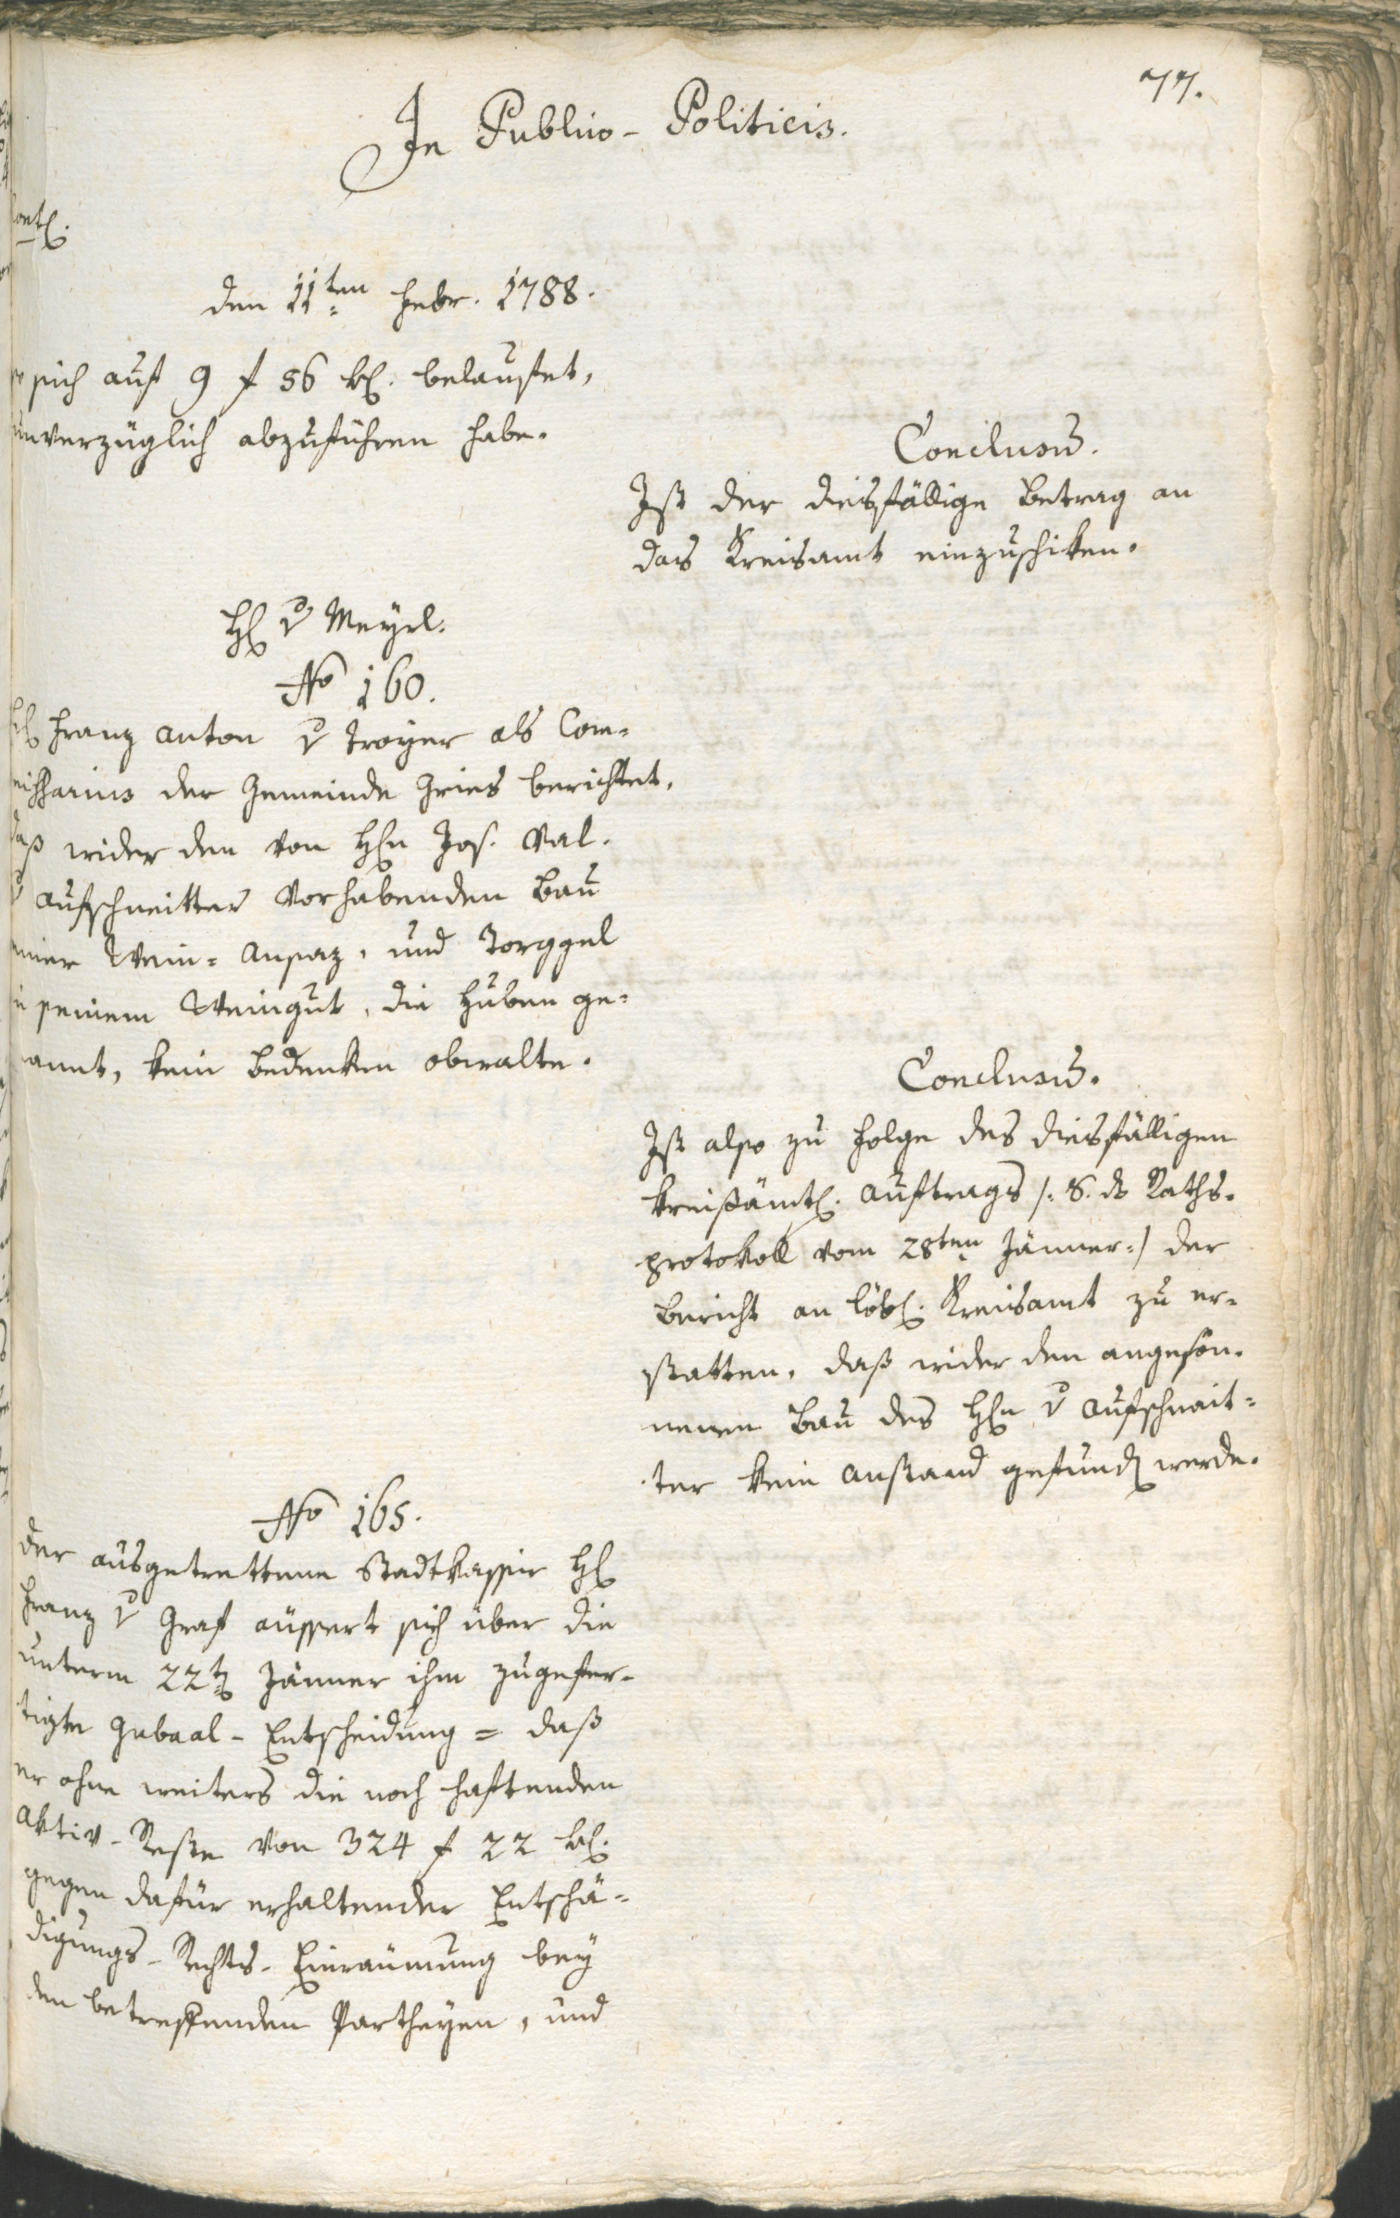 77.
In Publico-Politicis.
den 11ten Febr. 1788.
sich auf 9 f 56 kr. belaufet,
unverzüglich abzuführen habe.
Conclusum.
Ist der diesfällige Betrag an
das Kreisamt einzuschiken.
H. v Meyrl.
No 160.
H. Franz Anton v Troyer als Com¬
missarius der Gemeinde Gries berichtet,
daß wider den von Hrn Jos. Val.
v Aufschneitter vorhabenden Bau
einer Wein- Ansaz, und Torggel
in seinem Weingut, die Huben ge¬
nannt, kein Bedenken obwalte.
Conclusum.
Ist also zu Folge des diesfälligen
kreisämtl. Auftrags /: S. ds Raths¬
protokoll vom 28ten Jänner :/ der
Bericht an löbl. Kreisamt zu er¬
statten, daß wider den angeson¬
nenen Bau des Hrn v Aufschnait¬
ter kein Anstand gefunden werde.
No 165.
Der ausgetrettene Stadtkassir H.
Franz v Graf äussert sich über die
unterm 22t. Jänner ihm zugefer¬
tigte Gubaal-Entscheidung = daß
er ohne weiters die noch haftenden
Aktiv-Reste von 324 f 22 kr.
gegen dafür erhaltender Entschä¬
digungs-Rechts-Einräumung bey
den betreffenden Partheyen, und